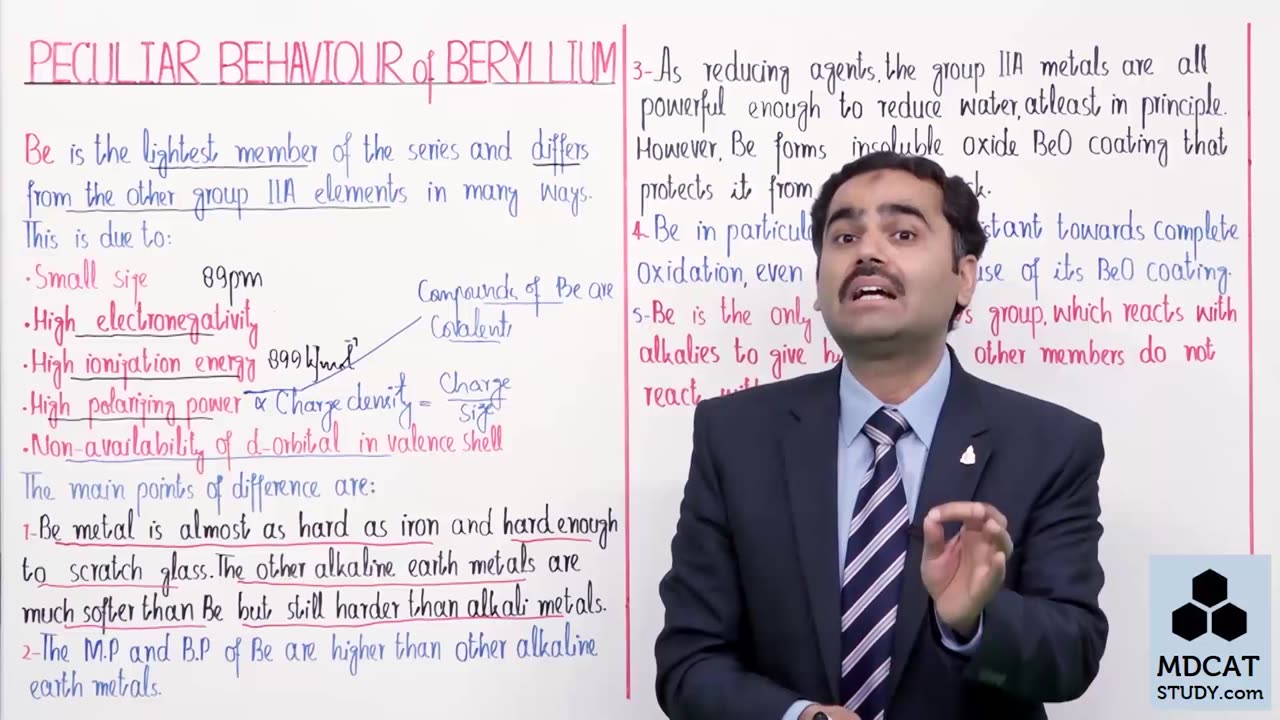 PECULIAR BEHAVIOUR of BERYLLIUM
Be is the lightest member of the series and differs
from the other group IIA elements in many ways.
This is due to:
• Small size 89pm
• High electronegativity
• High ionization energy 899 kJmol⁻¹
• High polarizing power ∝ Charge density = Charge / Size
Compounds of Be are
Covalent
• Non-availability of d-orbital in valence shell
The main points of difference are:
1-Be metal is almost as hard as iron and hard enough
to scratch glass. The other alkaline earth metals are
much softer than Be but still harder than alkali metals.
2-The M.P and B.P of Be are higher than other alkaline
earth metals.
3-As reducing agents, the group IIA metals are all
powerful enough to reduce water, atleast in principle.
However, Be forms insoluble oxide BeO coating that
protects it from
4. Be in particul stant towards complete
Oxidation, even use of its BeO coating.
5-Be is the only s group, which reacts with
alkalies to give h other members do not
react
MDCAT
STUDY.com